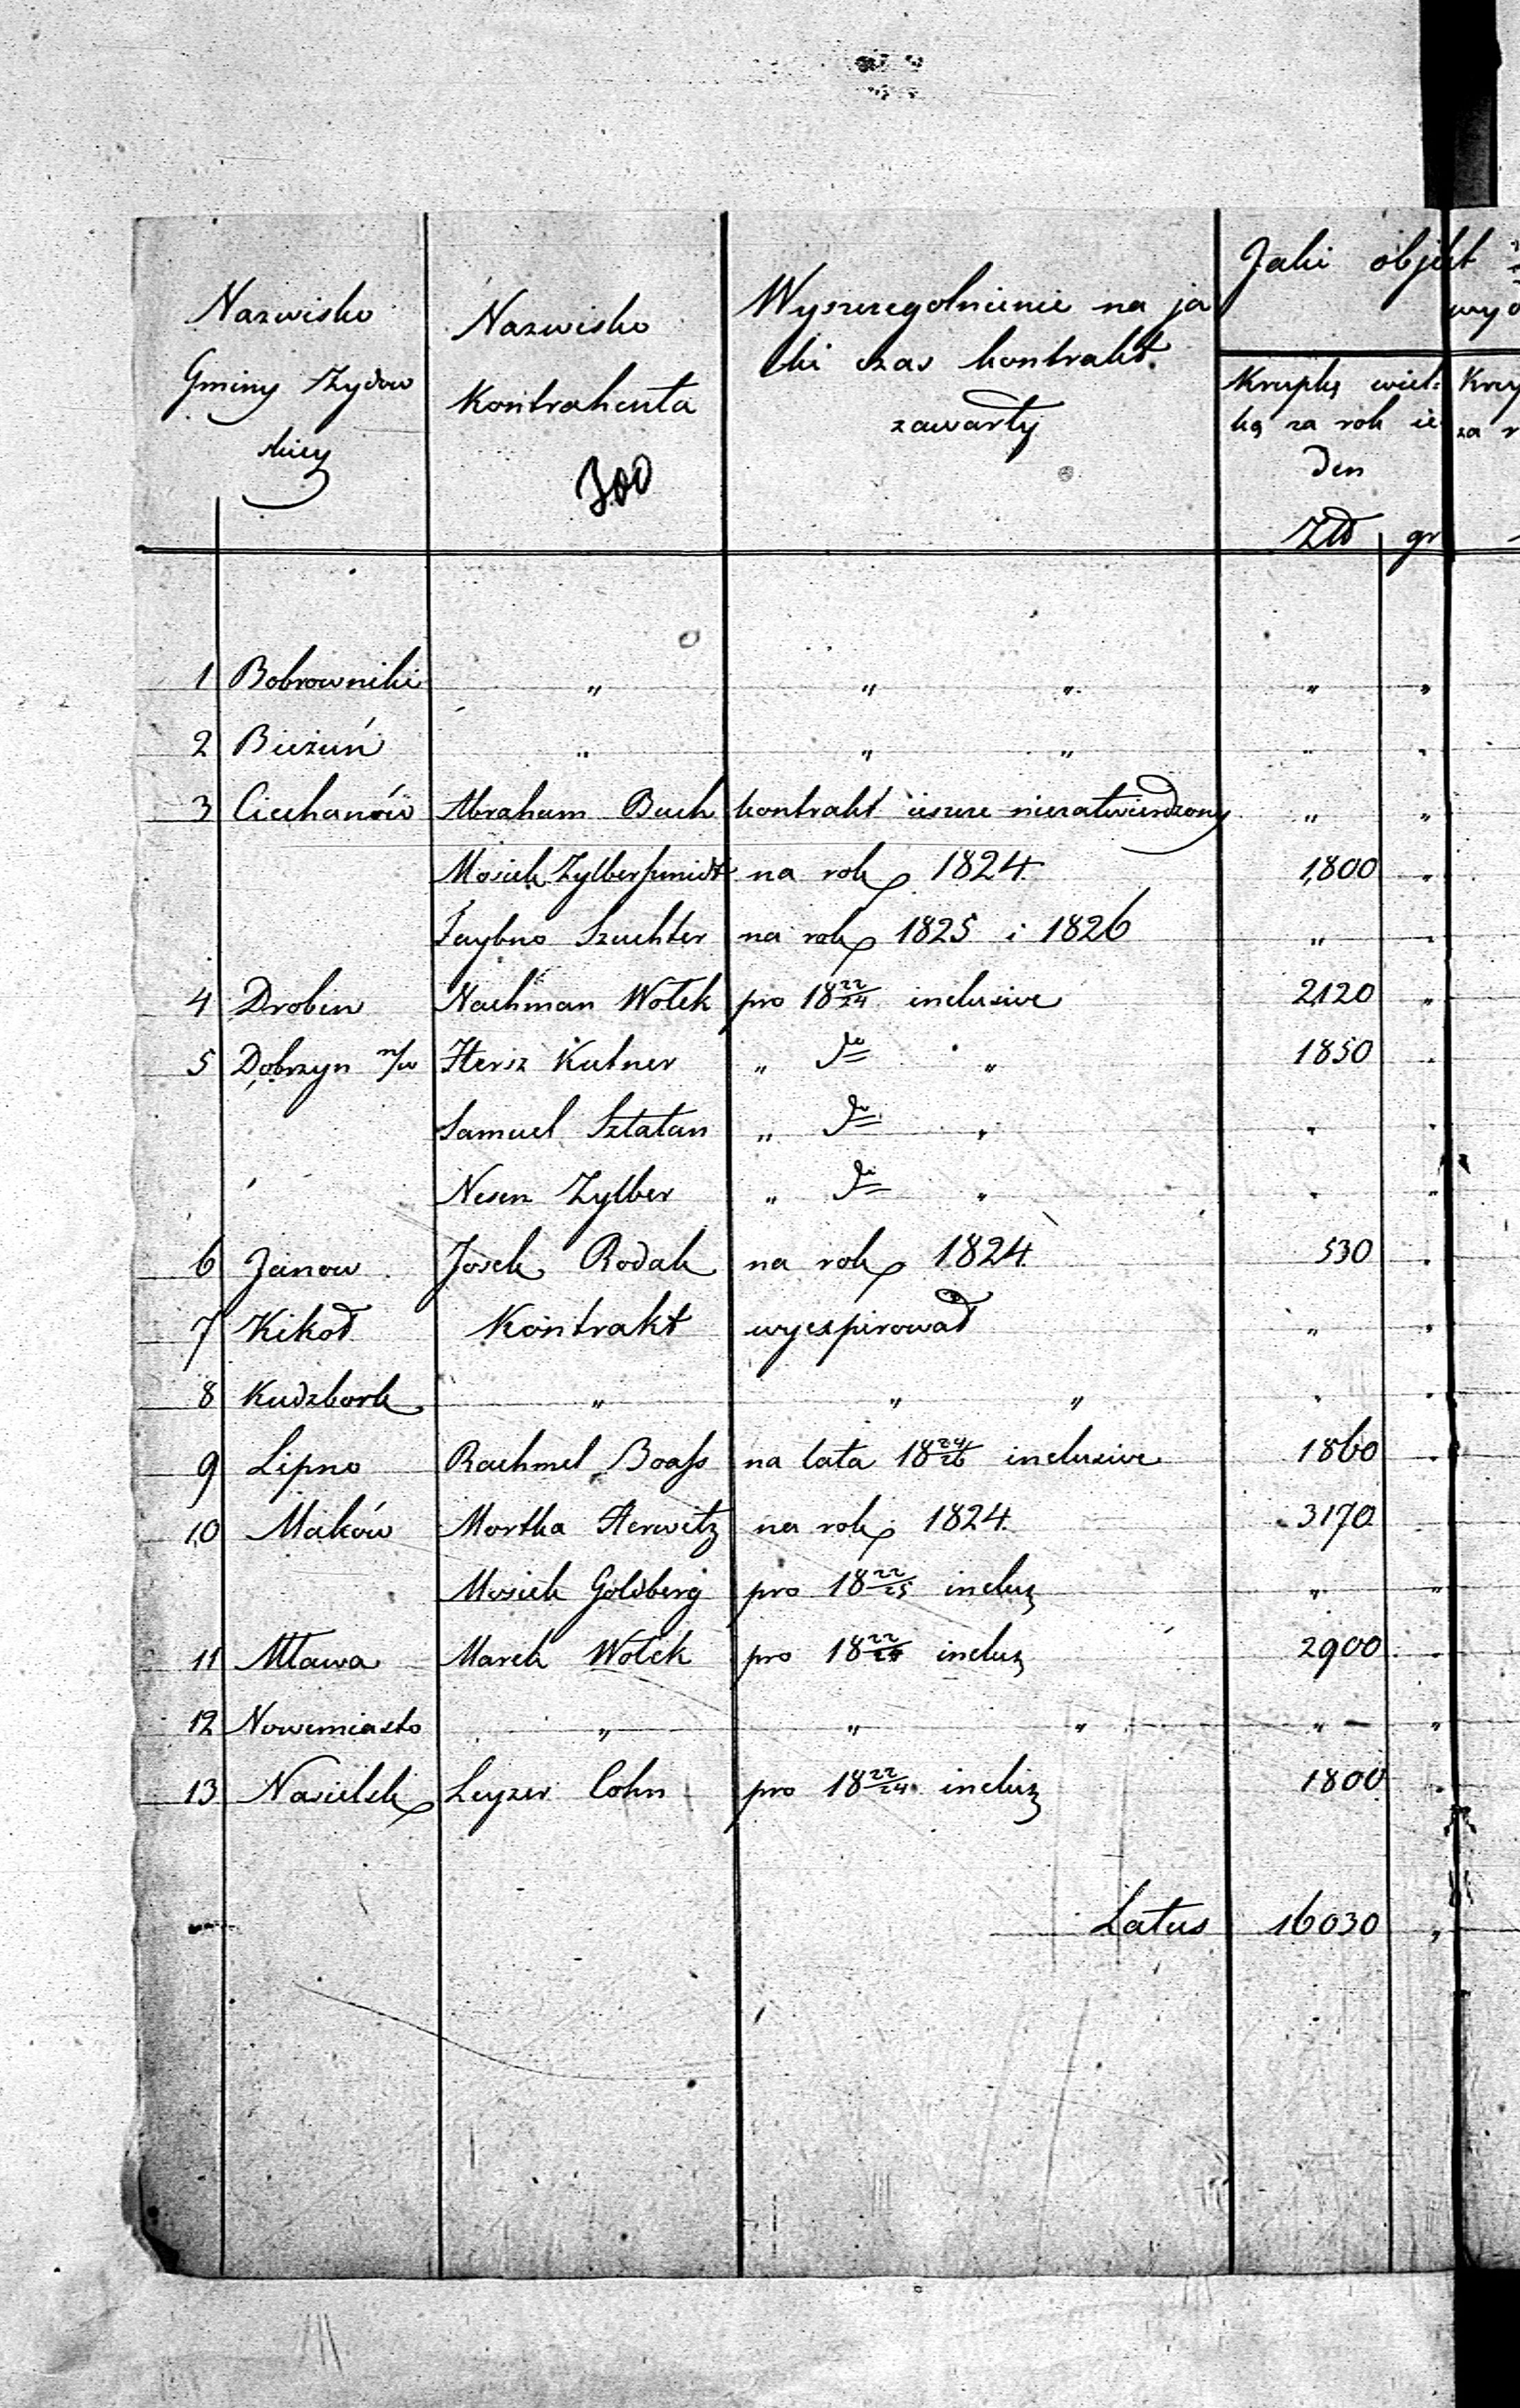 Nazwisko
Gminy Żydow
skiey
Nazwisko
Kontrahenta
300
Wyszczegolnienie na ja
ki czas kontrakt
zawarty
Jaki objekt
Krupkę wiel-
ką za rok ie
den
Złł gr
1 Bobrowniki " " " " "
2 Bieżuń " " " " "
3 Ciechanów Abraham Buch kontrakt ieszcze niezatwierdzony " "
Mosiek Zylberszmidt na rok 1824 1,800 "
Faybus Szuchter na rok 1825 i 1826 " "
4 Drobin Nachman Wołek pro 18 22/24 inclusive 2120 "
5 Dobrzyn n/w Hersz Kutner " do " 1850 "
Samuel Sztatan " do " " "
Nesen Zylber " do " " "
6 Janow Josek Rodak na rok 1824 530 "
7 Kikoł Kontrakt wyexpirował " "
8 Kudzbork " " " " "
9 Lipno Rachmel Boass na lata 18 24/26 inclusive 1860 "
10 Maków Mortka Herwitz na rok 1824 3170
Mosiek Goldberg pro 18 22/25 inclus " "
11 Mława Marek Wołek pro 18 22/24 inclus 2900 "
12 Nowemiasto " " " " "
13 Nasielsk Leyzer Cohn pro 18 22/24 inclus 1800 "
Latus 16030 "